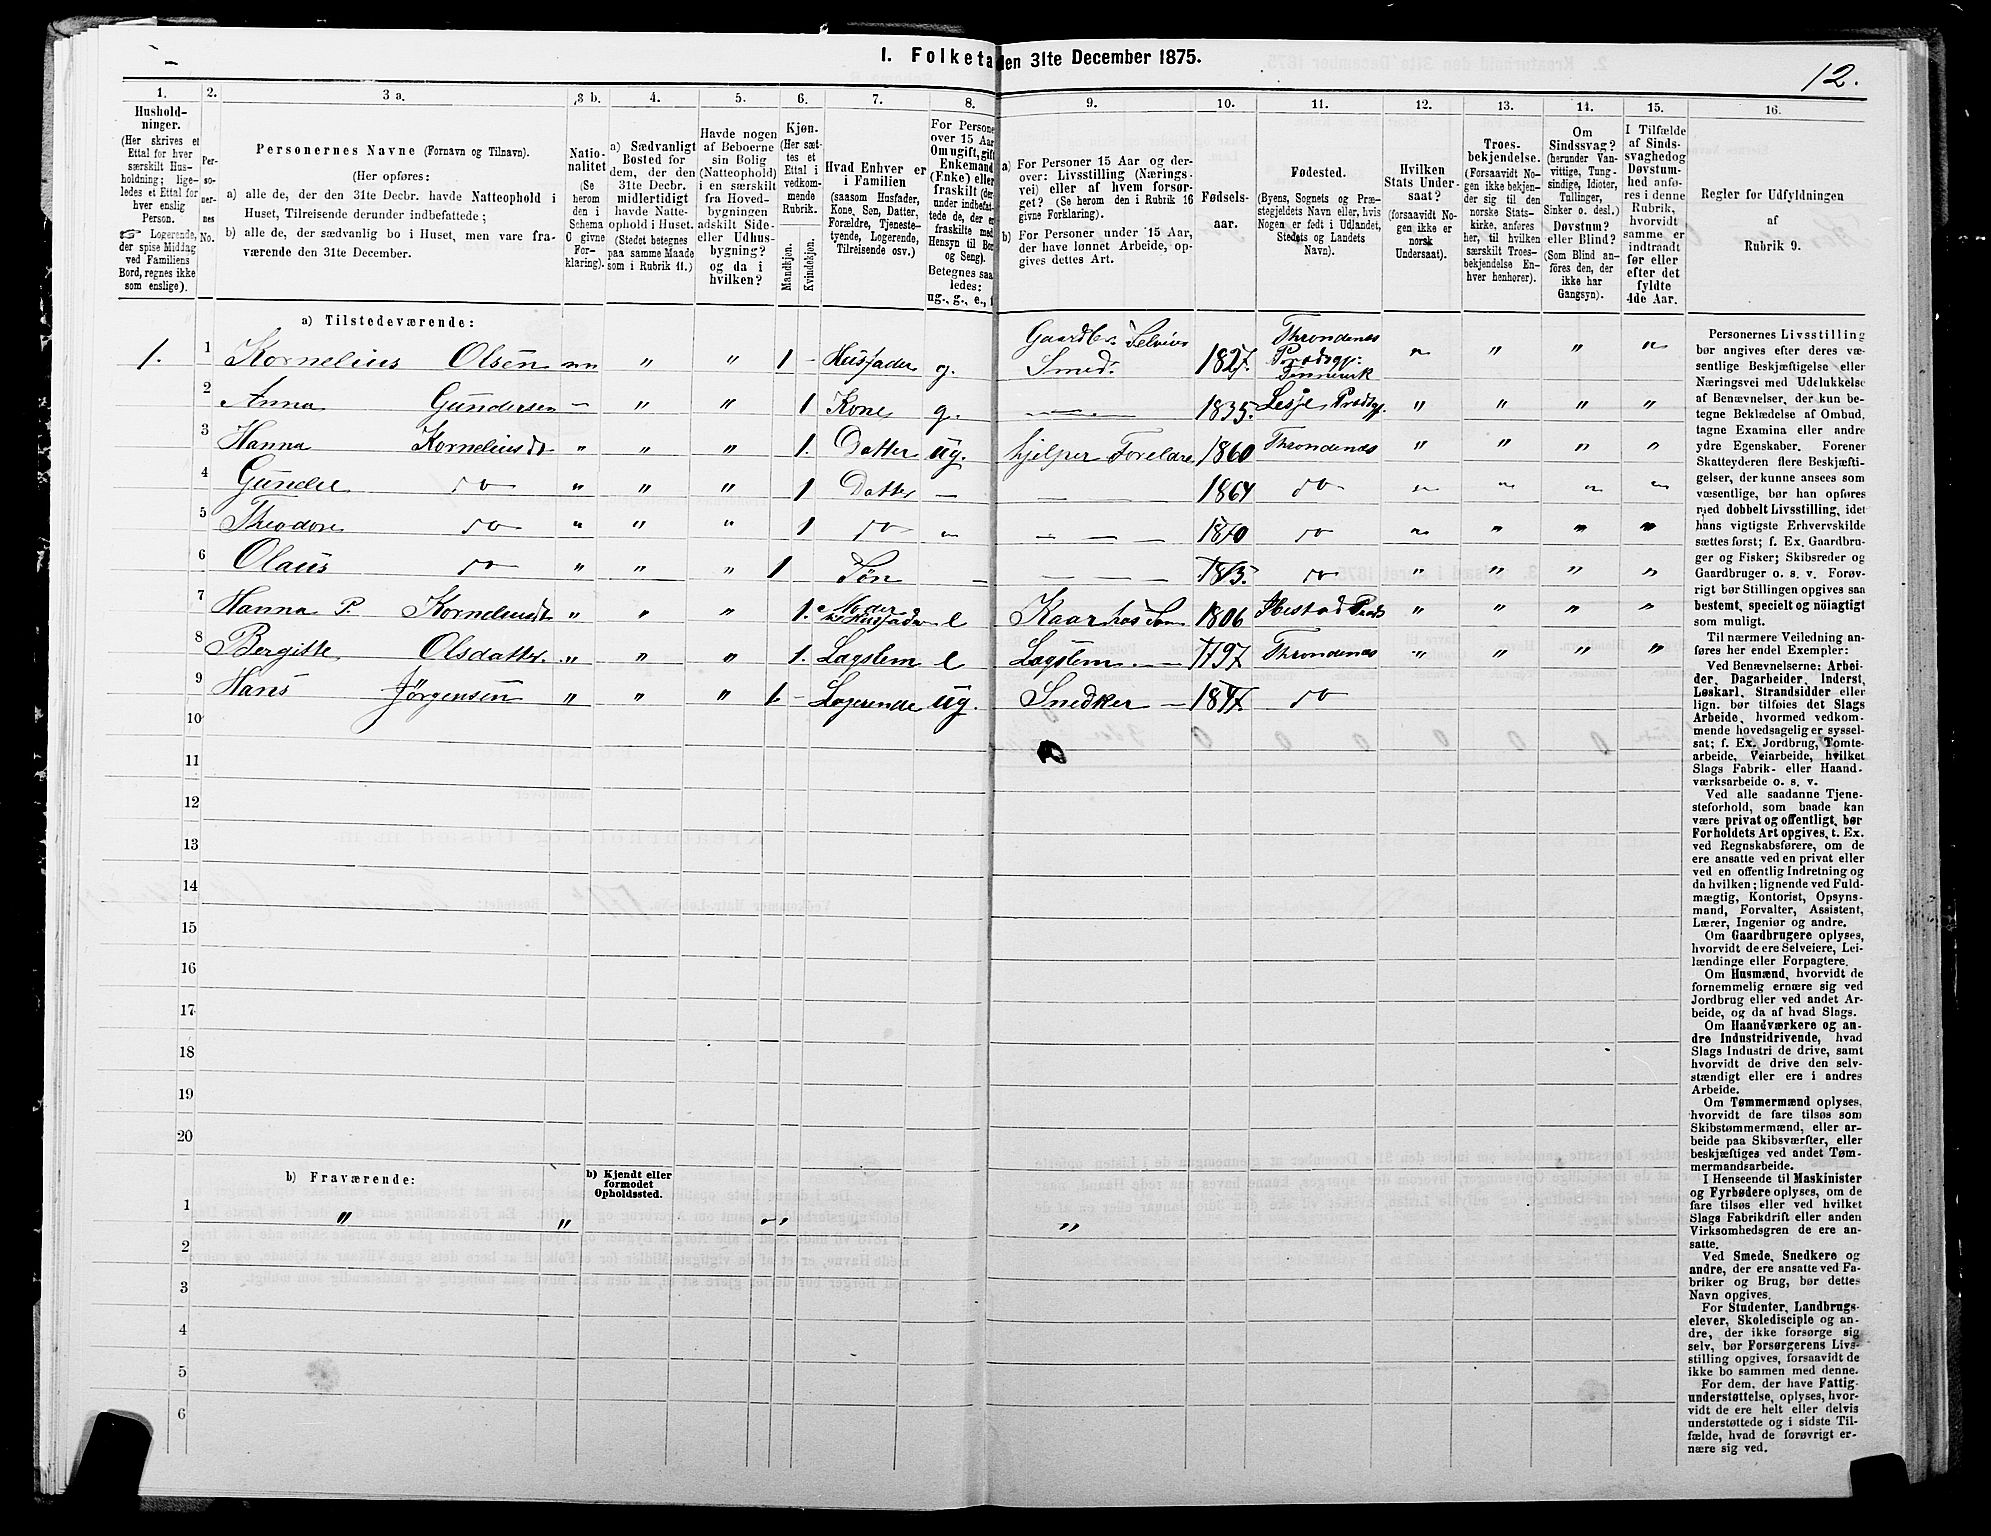 I. Folketa den 31te December 1875.
12.
1. 2. 3 a. 3 b. 4. 5. 6. 7. 8. 9. 10. 11. 12. 13. 14. 15. 16.
Hushold-
ninger.
(Her skrives et
Ettal for hver
særskilt Hus-
holdning; lige-
ledes et Ettal for
hver enslig
Person.
☞ Logerende,
der spise Middag
ved Familiens
Bord, regnes ikke
som enslige).
Per-
so-
ner-
nes
No.
Personernes Navne (Fornavn og Tilnavn).
(Her opføres:
a) alle de, der den 31te Decbr. havde Natteophold i
Huset, Tilreisende derunder indbefattede;
b) alle de, der sædvanlig bo i Huset, men vare fra-
værende den 31te December.
Natio-
nalitet
(Se
herom
den i
Schema
C givne
For-
klaring).
a) Sædvanligt
Bosted for
dem, der den
31te Decbr.
midlertidigt
havde Natte-
ophold i Huset.
(Stedet betegnes
paa samme Maade
som i Rubrik 11.)
Havde nogen
af Beboerne
sin Bolig
(Natteophold)
i en særskilt
fra Hoved-
bygningen
adskilt Side-
eller Udhus-
bygning?
og da i
hvilken?
Kjøn.
(Her sæt-
tes et
Ettal i
vedkom-
mende
Rubrik.
Mandkjøn.
Kvindekjøn.
Hvad Enhver er
i Familien
(saasom Husfader,
Kone, Søn, Datter,
Forældre, Tjeneste-
tyende, Logerende,
Tilreisende osv.)
For Persone
over 15 Aar
Om ugift, gift
Enkemand
(Enke) eller
fraskilt (der
under indbefat-
tede de, der er
fraskilte med
Hensyn til Bor
og Seng).
Betegnes saa
ledes:
ug., g., e., f
a) For Personer 15 Aar og der-
over: Livsstilling (Nærings-
vei) eller af hvem forsør-
get? (Se herom den i Rubrik 16
givne Forklaring).
b) For Personer under 15 Aar,
der have lønnet Arbeide, op-
gives dettes Art.
Fødsels-
aar.
Fødested.
(Byens, Sognets og Præ-
stegjeldets Navn eller, hvis
Nogen er født i Udlandet,
Stedets og Landets
Navn).
Hvilken
Stats Under-
saat?
(forsaavidt No-
gen ikke er
norsk
Undersaat).
Troes-
bekjendelse.
(Forsaavidt No-
gen ikke bekjen-
der sig til den
norske Stats-
kirke, anføres
her, til hvilken
særskilt Troes-
bekjendelse En-
hver henhører).
Om
Sindssvag?
(herunder Van-
vittige, Tung-
sindige, Idioter,
Tullinger,
Sinker o. desl.)
Døvstum?
eller Blind?
(Som Blind an-
føres den, der
ikke har
Gangsyn).
I Tilfælde
af Sinds-
svaghedog
Døvstum-
hed anfø-
res i denne
Rubrik,
hvorvidt
samme er
indtraadt
før eller
efter det
fyldte
4de Aar.
Regler for Udfyldningen
af
Rubrik 9.
a) Tilstedeværende:
1. 1 Kornelius Olsen nn " " 1 – Husfader g. Gaardbr. Selveier Smed. 1827. Throndenæs Prædsgj: " " " "
2 Anna Gundersen – " " 1 Kone g. — 1835. Lesje Prædsgj. " " " "
3 Hanna Korneliusdt " " " 1. Datter ug. hjelper Foreldre 1860 Throndenæs " " " "
4 Do " " " 1 Datter — — 1864 Do " " " "
5 Theodore Do " " " 1 Do " — 1870 Do " " " "
6 Olaus Do " " " 1 Søn — — Do " " " "
7 Hanna P. Korneliusdt " " " 1. Moder Husfader e Kaar hos Søn 1806 Ibestad Præds " " " "
8 Bergitte Olsdatter. " " " 1. Lægslem e Lægslem — 1797 Throndenæs " " " "
9 Hans Jørgensen " " " 1 – Logerende ug. Snedker — 1847. Do
10
11
12
13
14
15
16
17
18
19
20
b) Fraværende:
b) Kjendt eller
formodet
Opholdssted.
1 " " " "
2
3
4
5
6
Personernes Livsstilling
bør angives efter deres væ-
sentlige Beskjæftigelse eller
Næringsvei med Udelukkelse
af Benævnelser, der kun be-
tegne Beklædelse af Ombud,
tagne Examina eller andre
ydre Egenskaber. Forener
Skatteyderen flere Beskjæfti-
gelser, der kunne ansees som
væsentlige, bør han opføres
med dobbelt Livsstilling, idet
hans vigtigste Erhvervskilde
sættes først; f. Ex. Gaardbru-
ger og Fisker; Skibsreder og
Gaardbruger o. s. v. Forøv-
rigt bør Stillingen opgives saa
bestemt, specielt og nöiagtigt
som muligt.
Til nærmere Veiledning an-
føres her endel Exempler:
Ved Benævnelserne: Arbei-
der, Dagarbeider, Inderst,
Løskarl, Strandsidder eller
lign. bør tilføies det Slags
Arbeide, hvormed vedkom-
mende hovedsagelig er syssel-
sat; f. Ex. Jordbrug, Tomte-
arbeide, Veiarbeide, hvilket
Slags Fabrik- eller Haand-
værksarbeide o. s. v.
Ved alle saadanne Tjene-
steforhold, som baade kan
være privat og offentligt, bør
Forholdets Art opgives, t. Ex.
ved Regnskabsførere, om de
ere ansatte ved en privat eller
ved en offentlig Indretning og
da hvilken; lignende ved Fuld-
mægtig, Kontorist, Opsyns-
mand, Forvalter, Assistent,
Lærer, Ingeniør og andre.
Om Gaardbrugere oplyses,
hvorvidt de ere Selveiere, Lei-
lændinge eller Forpagtere.
Om Husmænd, hvorvidt de
fornemmelig ernære sig ved
Jordbrug eller ved andet Ar-
beide, og da af hvad Slags.
Om Haandværkere og an-
dre Industridrivende, hvad
Slags Industri de drive, samt
hvorvidt de drive den selv-
stændigt eller ere i andres
Arbeide.
Om Tømmermænd oplyses,
hvorvidt de fare tilsøs som
Skibstømmermænd, eller ar-
beide paa Skibsværfter, eller
beskjæftiges ved andet Tøm-
mermandsarbeide.
I Henseende til Maskinister
og Fyrbødere oplyses, om de
fare tilsøs eller ved hvilket
Slags Fabrikdrift eller anden
Virksomhedsgren de ere an-
satte.
Ved Smede, Snedkere og
andre, der ere ansatte ved Fa-
briker og Brug, bør dettes
Navn opgives.
For Studenter, Landbrugs-
elever, Skoledisciple og an-
dre, der ikke forsørge sig
selv, bør Forsørgerens Livs-
stilling opgives, forsaavidt de
ikke bo sammen med denne.
For dem, der have Fattig-
understøttelse, oplyses, hvor-
vidt de ere helt eller delvis
understøttede og i sidste Til-
fælde, hvad de forøvrigt er-
nære sig ved.